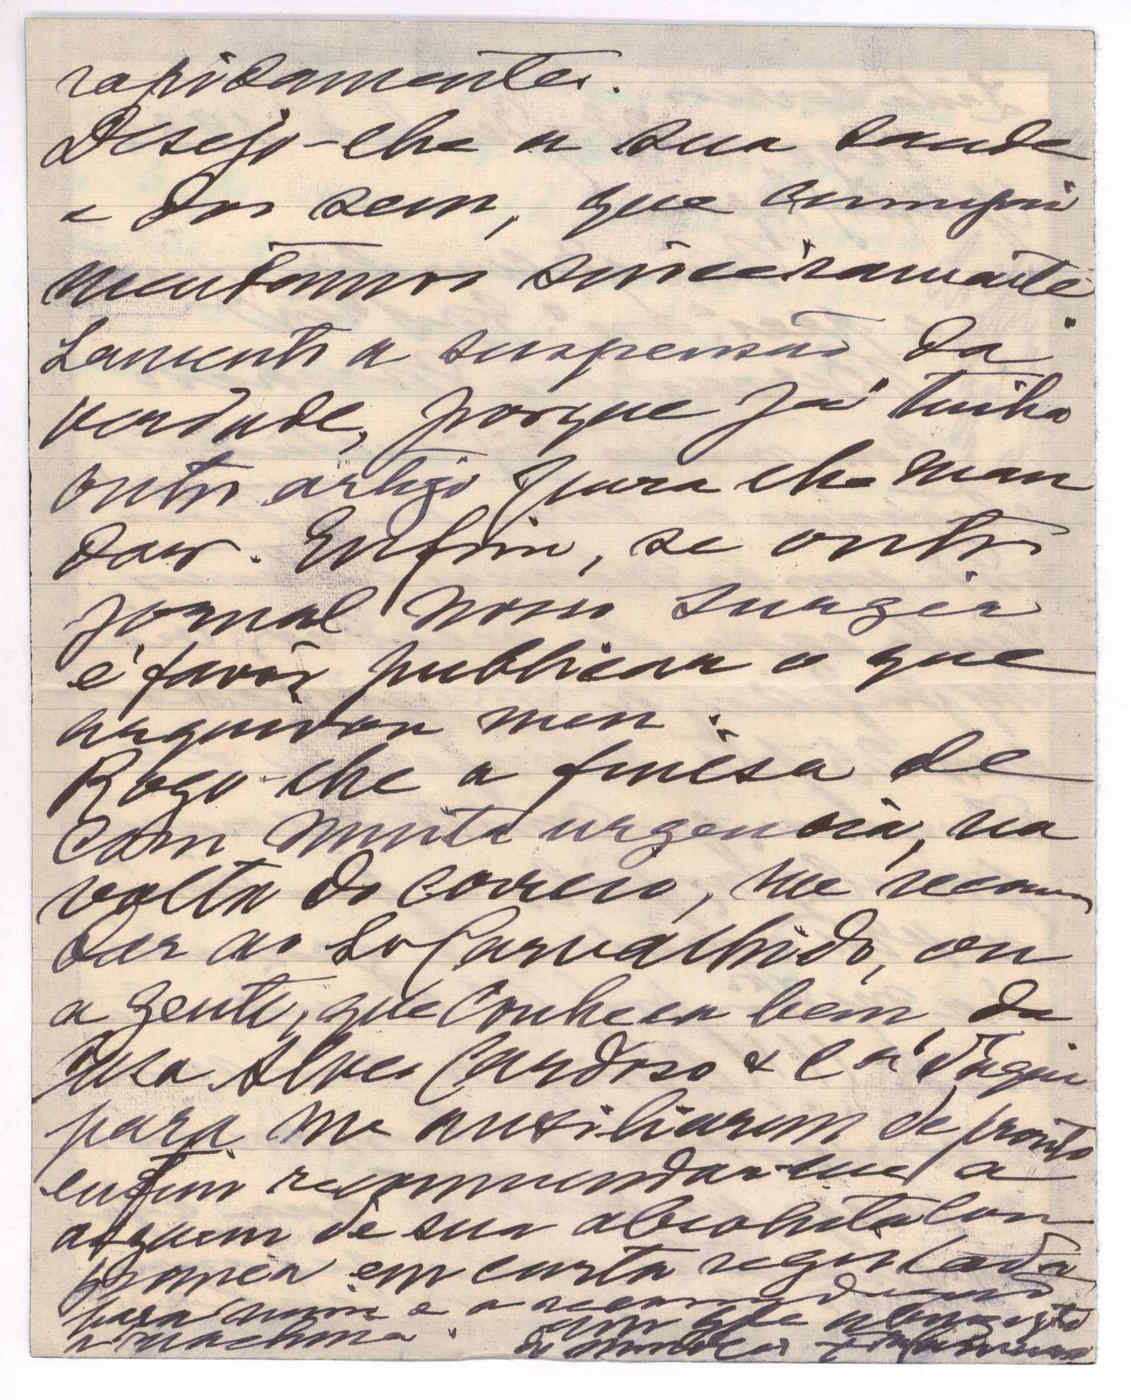 rapidamente.
Desejo-lhe a sua saude
e dos seus, que cumpri
mentamos sinceiramente
Lamento a suspensão da
verdade, porque já tinha
outro artigo para lhe man
dar. Enfim, se outro
jornal nosso surgir
é favôr publicar o que
arquivou meu.
Rogo-lhe a finêsa de
com muita urgencia, na
volta do correio, me recomen
dar ao Sr Carvalhido, ou
a gente, que conheca bem, da
Alves Cardoso & Cª d'aqui
para me auxiliarem de pronto
enfim recommendar-me a
alguem de sua absoluta con
fiança em carta registada
para mim e a recomendação
a machina.